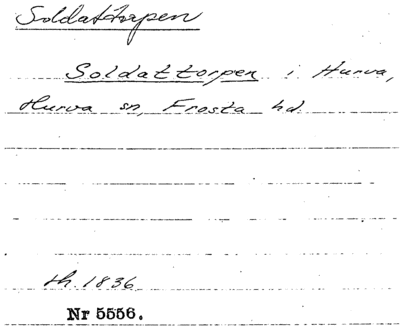 Soldattorpen
Soldattorpen i Hurva,
Hurva sn, Frosta hd.
th. 1836
Nr 5556.